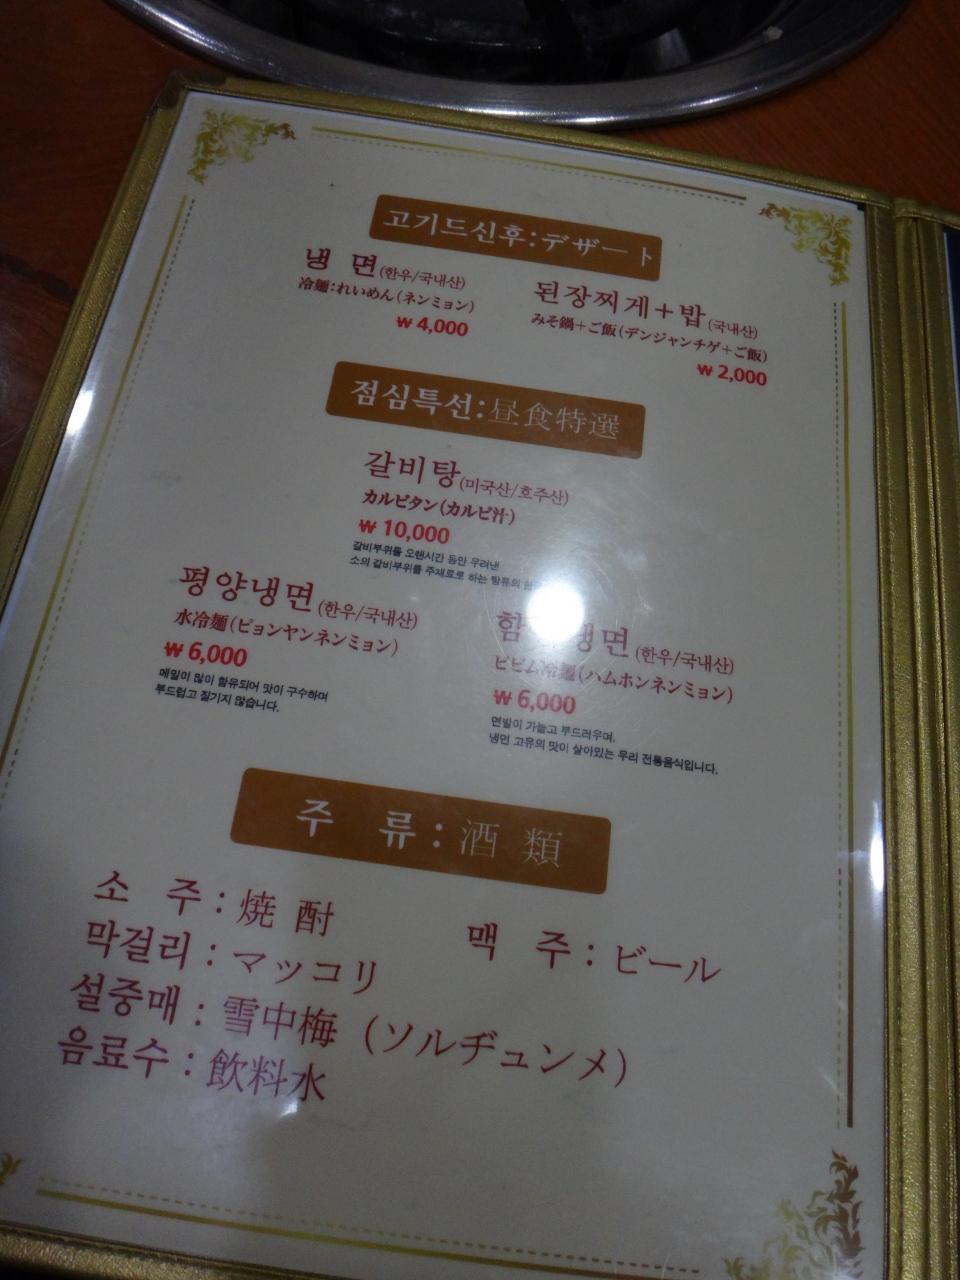 고기드신후:デザート
냉 면(한우/국내산)
冷麺:れいめん(ネンミョン)
₩ 4,000
된장찌게+밥(국내산)
みそ鍋+ご飯(デンジャンチゲ+ご飯)
₩ 2,000
점심특선:昼食特選
갈비탕(미국산/호주산)
カルビタン(カルビ汁)
₩ 10,000
갈비부위를 오랜시간 동안 우려낸
소의 갈비부위를 주재료로 하는 탕류의
평양냉면(한우/국내산)
水冷麺(ピョンヤンネンミョン)
₩ 6,000
메밀이 많이 함유되어 맛이 구수하며
부드럽고 질기지 않습니다.
함 냉면(한우/국내산)
ビビム冷麺(ハムホンネンミョン)
₩ 6,000
면발이 가늘고 부드러우며,
냉면 고유의 맛이 살아있는 우리 전통음식입니다.
주 류:酒 類
소 주:焼 酎
맥 주:ビール
막걸리:マッコリ
설중매:雪中梅(ソルヂュンメ)
음료수:飲料水